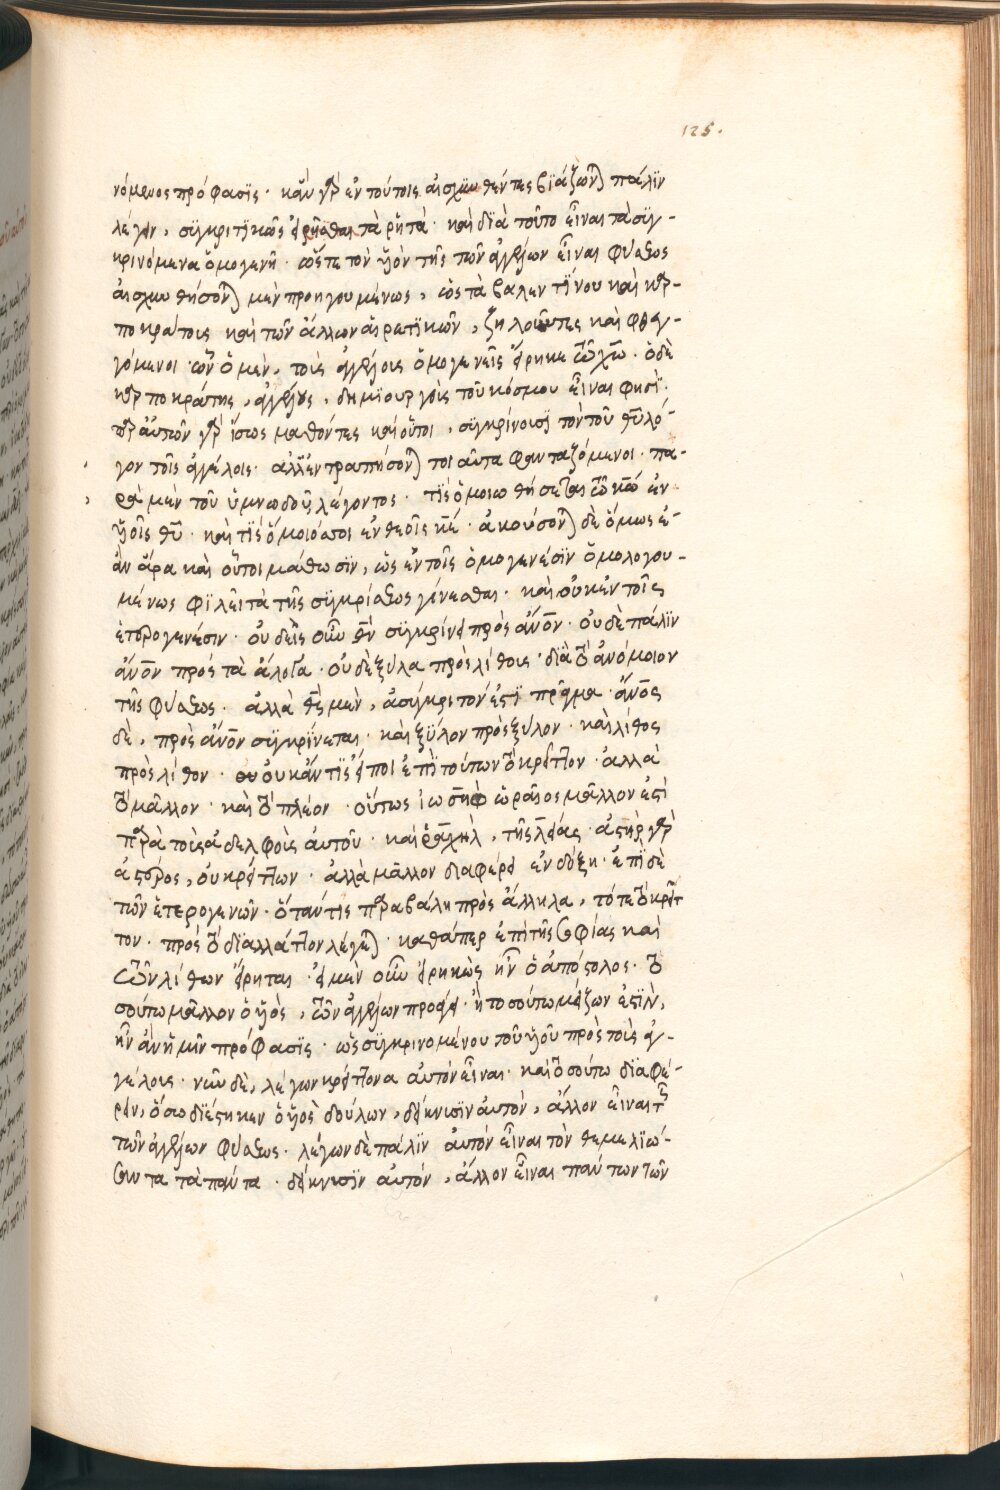 125.
νόμενος πρόφασϊς · κἂν γὰρ ἐν τούτοις αἰσχυνθέντες βϊάζων) πάλϊν
λέγειν, συγκριτικῶς εἰρῆσθαι τὰ ῥητὰ · καὶ διὰ τοῦτο εἶναι τὰ συγ-
κρινόμενα ὁμογενῆ · ὥστε τὸν ὑϊὸν τῆς τῶν ἀγγέλων εἶναι φύσεως
αἰσχυνθήσον) μὲν προηγουμένως, ὡς τὰ βαλεντίνου καὶ καρ-
ποκράτους καὶ τῶν ἄλλων αἱρετικῶν, ζηλοῦντες καὶ φθεγ-
γόμενοι · ὧν ὁ μὲν, τοὺς ἀγγέλους ὁμογενεῖς εἴρηκε τῶ χω̅ · ὁ δὲ
καρποκράτης, ἀγγέλους, δημιουργοὺς τοῦ κόσμου εἶναι φησὶ ·
παρ αὐτῶν γὰρ ἴσως μαθόντες καὶ οὗτοι, συγκρίνουσι τὸν τοῦ θυ̅ λό-
γον τοῖς ἀγγέλοις · ἀλλ ἐντραπήσον) τοιαῦτα φανταζόμενοι · πα-
ρὰ μὲν τοῦ ὑμνωδοῦ λέγοντος · τίς ὁμοιωθήσεται τῶ κω̅ ἐν
ὑϊοῖς θυ̅ · καὶ τίς ὅμοιός σοι ἐν θεοῖς κε̅ · ἀκούσον) δὲ ὅμως ἐ-
ὰν ἄρα καὶ οὗτοι μάθωσϊν, ὡς ἐν τοῖς ὁμογενέσϊν ὁμολογου-
μένως φιλεῖ τὰ τῆς συγκρίσεως γίνεσθαι · καὶ οὐκ ἐν τοῖς
ἑτερογενέσιν · οὐδεὶς οὖν θν̅ συγκρίνει πρὸς ἄνον̅ · οὐδὲ πάλϊν
ἄνον̅ πρὸς τὰ ἄλογα · οὐδὲ ξύλα πρὸς λίθους · διὰ τὸ ἀνόμοιον
τῆς φύσεως · ἀλλὰ θς̅ μὲν, ἀσύγκριτόν ἐστι πρᾶγμα · ἄνος̅
δὲ, πρὸς ἄνον̅ συγκρίνεται · καὶ ξύλον πρὸς ξύλον · καὶ λίθος
πρὸς λίθον · οὐκ ἄν τις εἴποι ἐπὶ τούτων τὸ κρεῖττον · ἀλλὰ
τὸ μᾶλλον · καὶ τὸ πλέον · οὕτως ἰωσὴφ ὡραῖος μᾶλλον ἐστὶ
παρὰ τοὺς ἀδελφοὺς αὐτοῦ · καὶ ῥαχὴλ, τῆς λείας · ἀστὴρ γὰρ
ἀστέρος, οὐ κρείττων · ἀλλὰ μᾶλλον διαφέρει ἐν δόξη · ἐπὶ δὲ
τῶν ἑτερογενῶν · ὅταν τις παραβάλη πρὸς ἄλληλα, τότε τὸ κρεῖτ
τον · πρὸς τὸ διαλλάττον λέγε) · καθάπερ ἐπὶ τῆς σοφίας καὶ
τῶν λίθων εἴρηται · εἰ μὲν οὖν εἰρηκὼς ἦν ὁ ἀπόστολος · το
σούτω μᾶλλον ὁ ὑϊὸς, τῶν ἀγγέλων προάγει · ἢ τοσούτω μείζων ἐστὶν,
ἦν ἂν ἡμῖν πρόφασϊς · ὡς συγκρινομένου τοῦ ὑϊοῦ πρὸς τοὺς ἀγ-
γέλους · νῦν δὲ, λέγων κρείττονα αὐτὸν εἶναι · καὶ τοσούτω διαφέ-
ρειν, ὅσω διέστηκεν ὁ ὑϊὸς δούλων, δείκνυσϊν αὐτὸν, ἄλλον εἶναι τῆς
τῶν ἀγγέλων φύσεως · λέγων δὲ πάλϊν αὐτὸν εἶναι τὸν θεμελιώ-
σαντα τὰ πάντα · δείκνυσϊν αὐτὸν, ἄλλον εἶναι πάντων τῶν